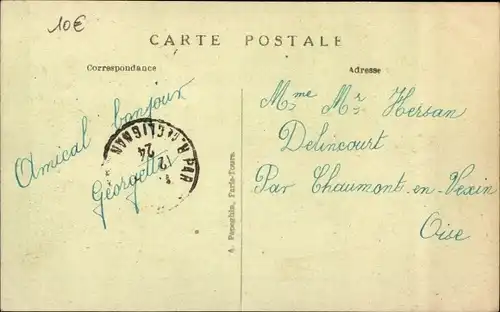 10€
CARTE POSTALE
Correspondance
Adresse
Amical bonjour
Georgette
PAR
R. DE CLIGNAN
24
A. Papeghin, Paris-Tours.
Mme Mr Hersan
Delincourt
Par Chaumont-en-Vexin
Oise